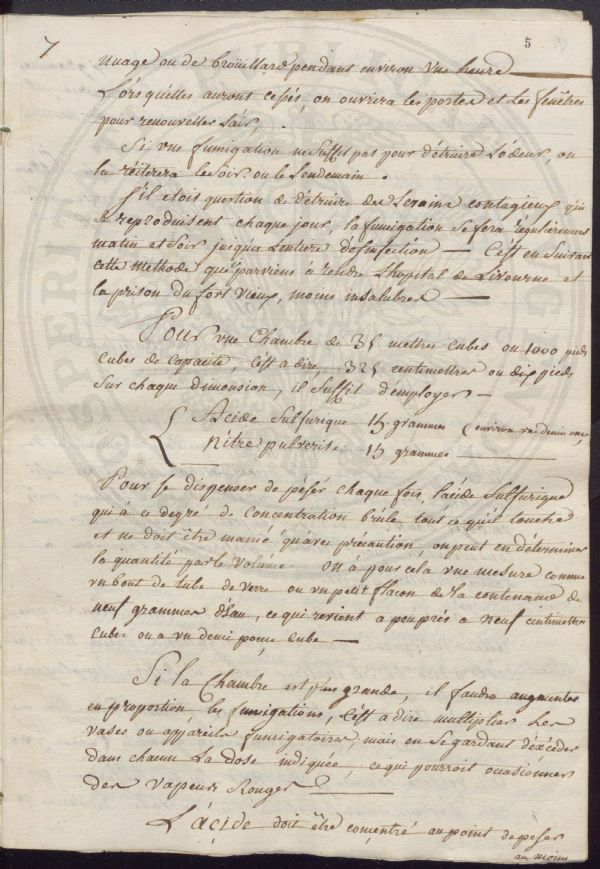 7
5
nuage ou de broüillard pendant environ une heure
Lorsqu'elles auront cessés, on ouvrira les portes et les fenêtres
pour renouveller l'air,
Si une fumigation ne suffit pas pour détruire l'odeur, on
la réïterera le soir ou le lendemain.
S'il etoit question de détruire des levains contagieux qui
se reproduisent chaque jour, la fumigation se fera régulièrement
matin et soir jusqua l'entiere desinfection — C'est en suivant
cette methode que parviens à rendre l'hopital de Livourne et
la prison du fort vieux, moins insalubres —
Pour une Chambre de 35 mettres cubes ou 1000 pieds
cubes de capacité, c'est a dire 325 centimettres ou dix pieds
sur chaque dimension, il suffit d'employer —
Acide sulfurique 15 grammes (environ un demie once)
Nitre pulverisé 15 grammes
Pour se dispenser de péser chaque fois l'acide sulfurique
qui a ce degré de concentration brûle tout ce qu'il touche
et ne doit être manié qu'avec précaution, on peut en déterminer
la quantité par le volume. On a pour cela une mesure comme
un bout de tube de verre ou un petit flacon de la contenance de
neuf grammes d'eau, ce qui revient a peuprès a neuf centimettres
cubes ou a un demi pouce cube —
Si la Chambre est plus grande, il faudra augmenter
en proportion les fumigations, c'est a dire multiplier les
vases ou appareils fumigatoires, mais en se gardant d'éxcéder
dans chacun la dose indiquée, ce qui pourroit occasionner
des vapeurs rouges
L'acide doit être concentré au point de peser
au moins